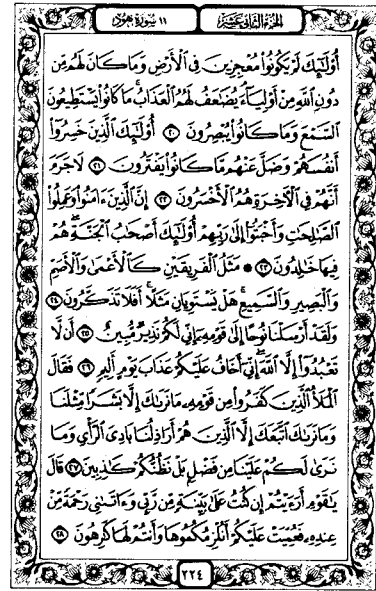 الجزء الثاني عشر ١١ سورة هود
أُوْلَٰٓئِكَ لَمْ يَكُونُوا۟ مُعْجِزِينَ فِى ٱلْأَرْضِ وَمَا كَانَ لَهُم مِّن
دُونِ ٱللَّهِ مِنْ أَوْلِيَآءَ يُضَٰعَفُ لَهُمُ ٱلْعَذَابُ مَا كَانُوا۟ يَسْتَطِيعُونَ
ٱلسَّمْعَ وَمَا كَانُوا۟ يُبْصِرُونَ ٢٠ أُوْلَٰٓئِكَ ٱلَّذِينَ خَسِرُوٓا۟
أَنفُسَهُمْ وَضَلَّ عَنْهُم مَّا كَانُوا۟ يَفْتَرُونَ ٢١ لَا جَرَمَ
أَنَّهُمْ فِى ٱلْأَخِرَةِ هُمُ ٱلْأَخْسَرُونَ ٢٢ إِنَّ ٱلَّذِينَ ءَامَنُوا۟ وَعَمِلُوا۟
ٱلصَّٰلِحَٰتِ وَأَخْبَتُوٓا۟ إِلَىٰ رَبِّهِمْ أُوْلَٰٓئِكَ أَصْحَٰبُ ٱلْجَنَّةِ هُمْ
فِيهَا خَٰلِدُونَ ٢٣ * مَثَلُ ٱلْفَرِيقَيْنِ كَٱلْأَعْمَىٰ وَٱلْأَصَمِّ
وَٱلْبَصِيرِ وَٱلسَّمِيعِ هَلْ يَسْتَوِيَانِ مَثَلًا أَفَلَا تَذَكَّرُونَ ٢٤
وَلَقَدْ أَرْسَلْنَا نُوحًا إِلَىٰ قَوْمِهِۦٓ إِنِّى لَكُمْ نَذِيرٌ مُّبِينٌ ٢٥ أَن لَّا
تَعْبُدُوٓا۟ إِلَّا ٱللَّهَ إِنِّىٓ أَخَافُ عَلَيْكُمْ عَذَابَ يَوْمٍ أَلِيمٍ ٢٦ فَقَالَ
ٱلْمَلَأُ ٱلَّذِينَ كَفَرُوا۟ مِن قَوْمِهِۦ مَا نَرَىٰكَ إِلَّا بَشَرًا مِّثْلَنَا
وَمَا نَرَىٰكَ ٱتَّبَعَكَ إِلَّا ٱلَّذِينَ هُمْ أَرَاذِلُنَا بَادِىَ ٱلرَّأْىِ وَمَا
نَرَىٰ لَكُمْ عَلَيْنَا مِن فَضْلٍ بَلْ نَظُنُّكُمْ كَٰذِبِينَ ٢٧ قَالَ
يَٰقَوْمِ أَرَءَيْتُمْ إِن كُنتُ عَلَىٰ بَيِّنَةٍ مِّن رَّبِّى وَءَاتَىٰنِى رَحْمَةً مِّنْ
عِندِهِۦ فَعُمِّيَتْ عَلَيْكُمْ أَنُلْزِمُكُمُوهَا وَأَنتُمْ لَهَا كَٰرِهُونَ ٢٨
٢٢٤